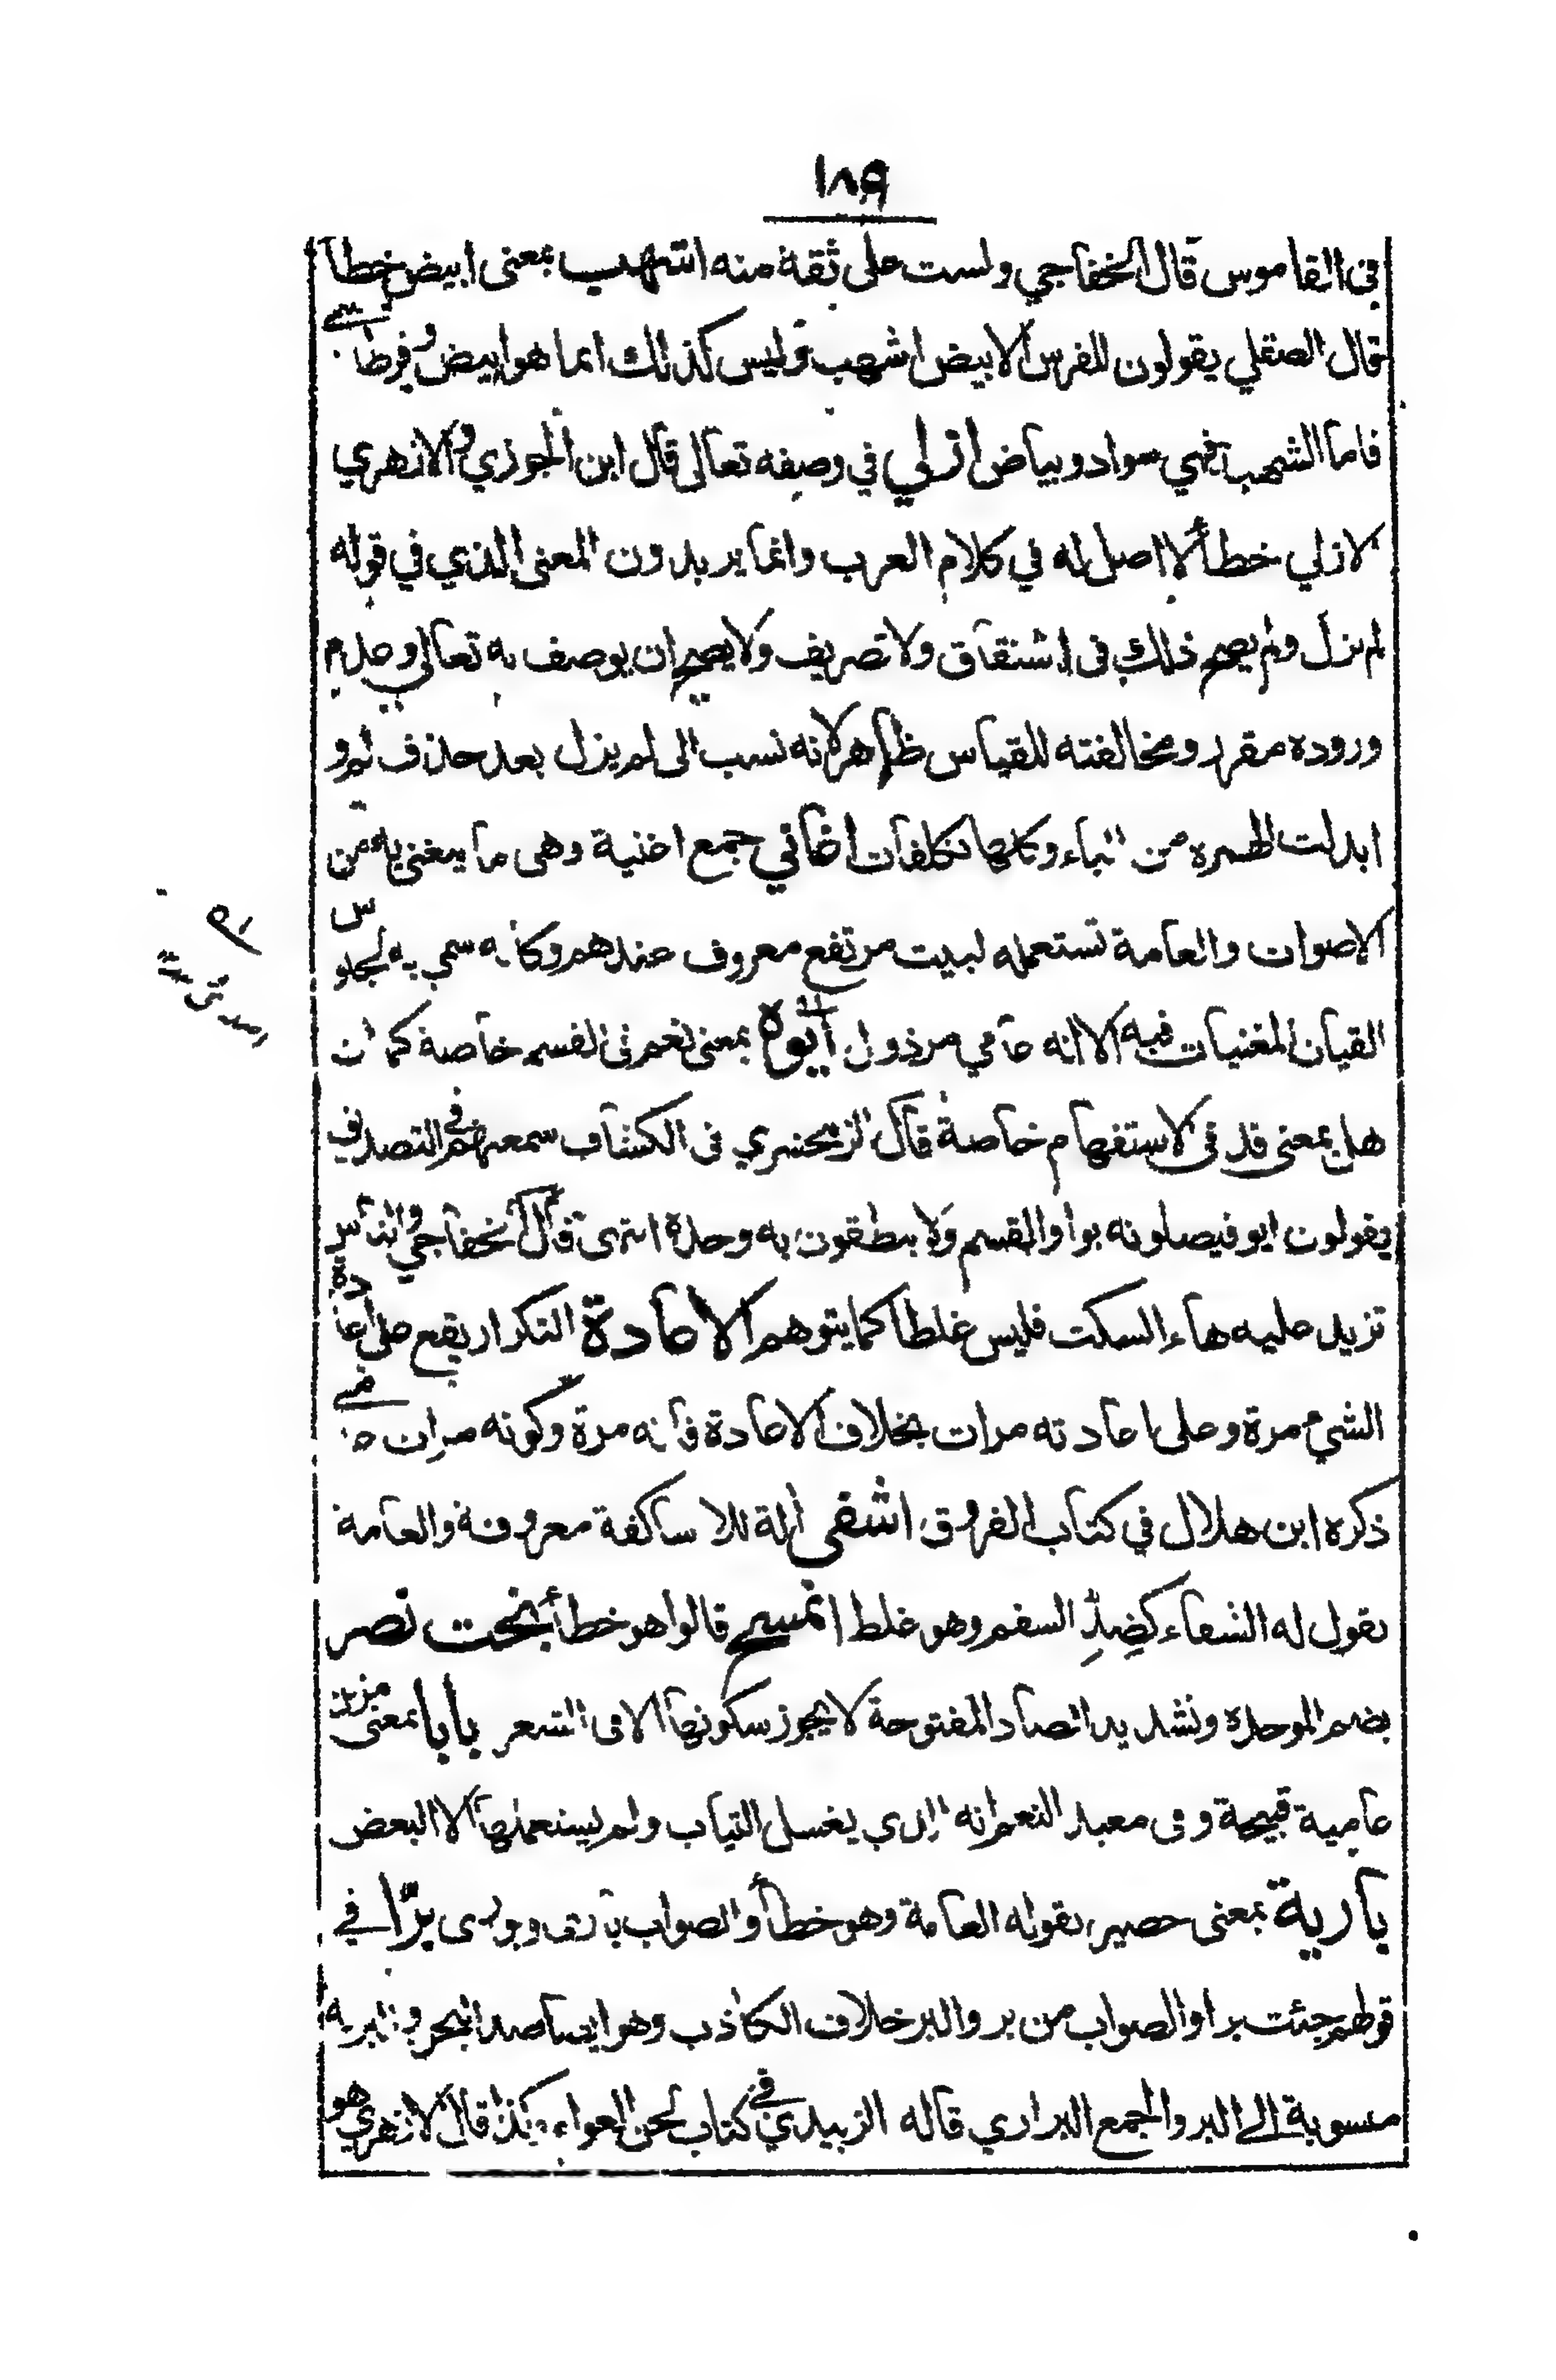 ١٨٩
فى القاموس قال الخفاجي ولست على ثقة منه اشهب بمعنى ابيض خطأ
قال الصقلي يقولون للفرس الابيض اشهب وليس كذلك انما هو ابيض وقرطاسے
فاما الشهب فهي سواد وبياض ازلي في وصفه تعالى قال ابن الجوزي والازهري
لازلي خطأ لا اصل له في كلام العرب وانما يريدون المعنى الذي في قوله
لم يزل ولم يصح ذلك فى اشتقاق ولا تصريف ولا يصح ان يوصف به تعالي وعدم
وروده مقرر ومخالفته للقياس ظاهر لانه نسب الى لم يزل بعد حذف لم و
ابدلت الهمزه من الياء وكلها تكلفات اغاني جمع اغنية وهى ما يتغنى به من
الاصوات والعامة تستعمله لبيت مرتفع معروف عندهم وكانه سمي به لجلوس
القيان المغنيات فيه الا انه عامي مرذول أيوه بمعنى نعم فى القسم خاصة كما ان
هل بمعنى قد فى لاستفهام خاصة قال الزمخشري فى الكشاف سمعتهم في التصديق
يقولون ايو فيصلونه بواو القسم ولا ينطقون به وحدة انتهى قال الخفاجي والناس
تزيد عليه هاء السكت فليس غلطا كما يتوهم الاعادة التكرار يقع على اعادة
الشيء مرة وعلى اعادته مرات بخلاف الاعادة فانه مرة وكونه مرات
ذكره ابن هلال في كتاب الفروق اشفى الة للاساكفة معروفة والعامة
تقول له الشفاء كضدِّ السقم وهو غلط اتمسح قالوا هو خطأ بخت نصر
بضم الموحدة وتشديد الصاد المفتوحة لا يجوز سكونها الا فى الشعر بابا بمعنى مزين
عامية قبيحة وفى معيد النعم انه الذي يغسل الثياب ولم يستعملها الا البعض
بارية بمعنى حصير تقوله العامة وهو خطأ والصواب بارى وبورى برّا في
قولهم جئت برا والصواب من بر والبر خلاف الكاذب وهو ايضا ضد البحر والبرية
منسوبة إلى البر والجمع البراري قاله الزبيدي في كتاب لحن العوام كذا قال الازهري هو